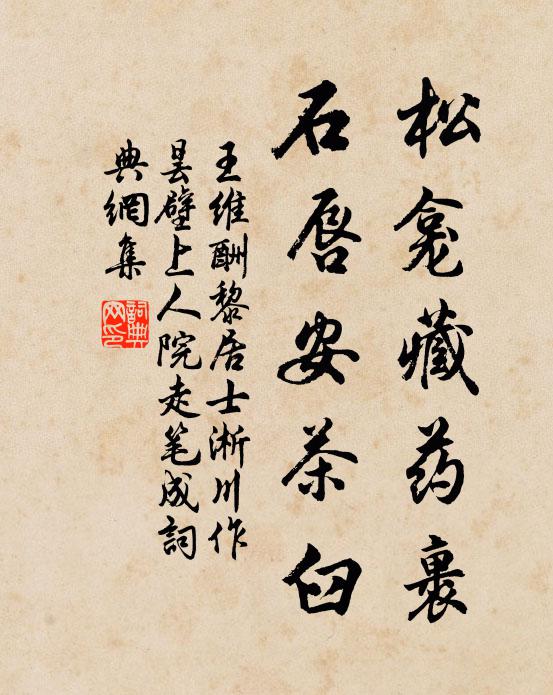 松龛藏药裹
石唇安茶臼
王维酬黎居士淅川作
昙壁上人院走笔成詞
典網集
詞典网印